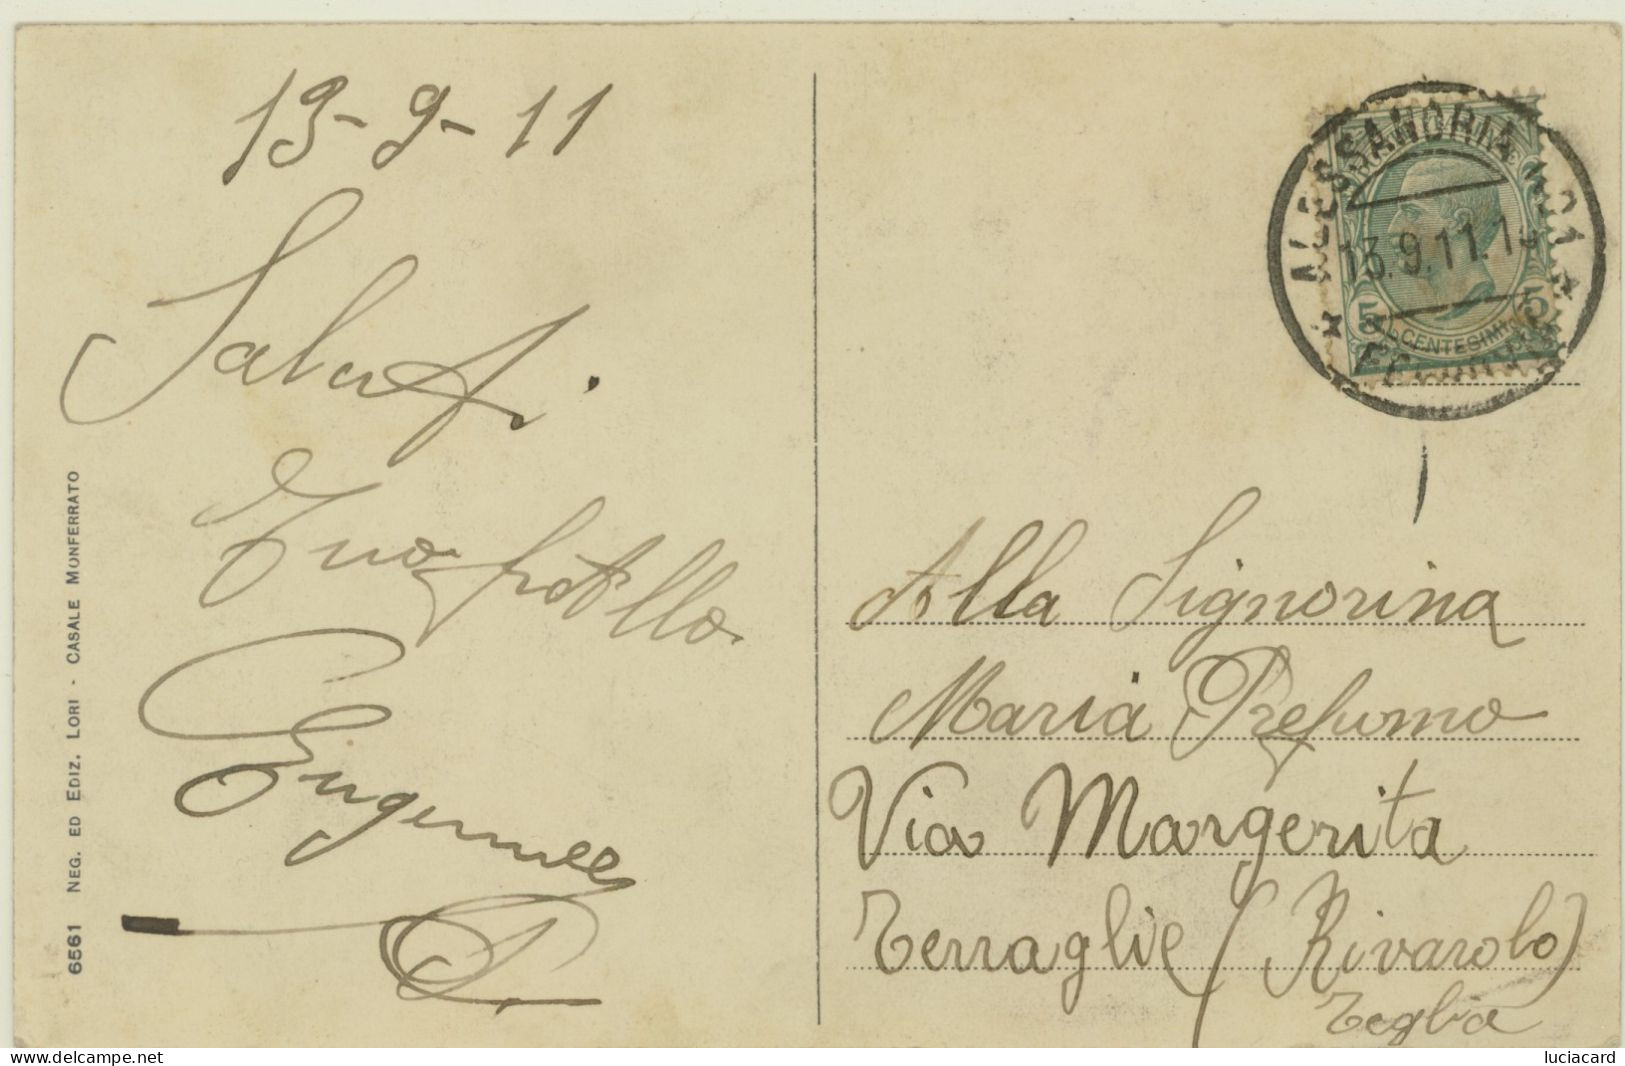 13-9-11
Saluti.
Tuo fratello
6561 NEG. ED EDIZ. LORI - CASALE MONFERRATO
ALESSANDRIA
13.9.11.1
5 CENTESIMI 5
Alla Signorina
Maria Prefumo
Via Margerita
Terraglie (Rivarolo)
Teglia
luciacard